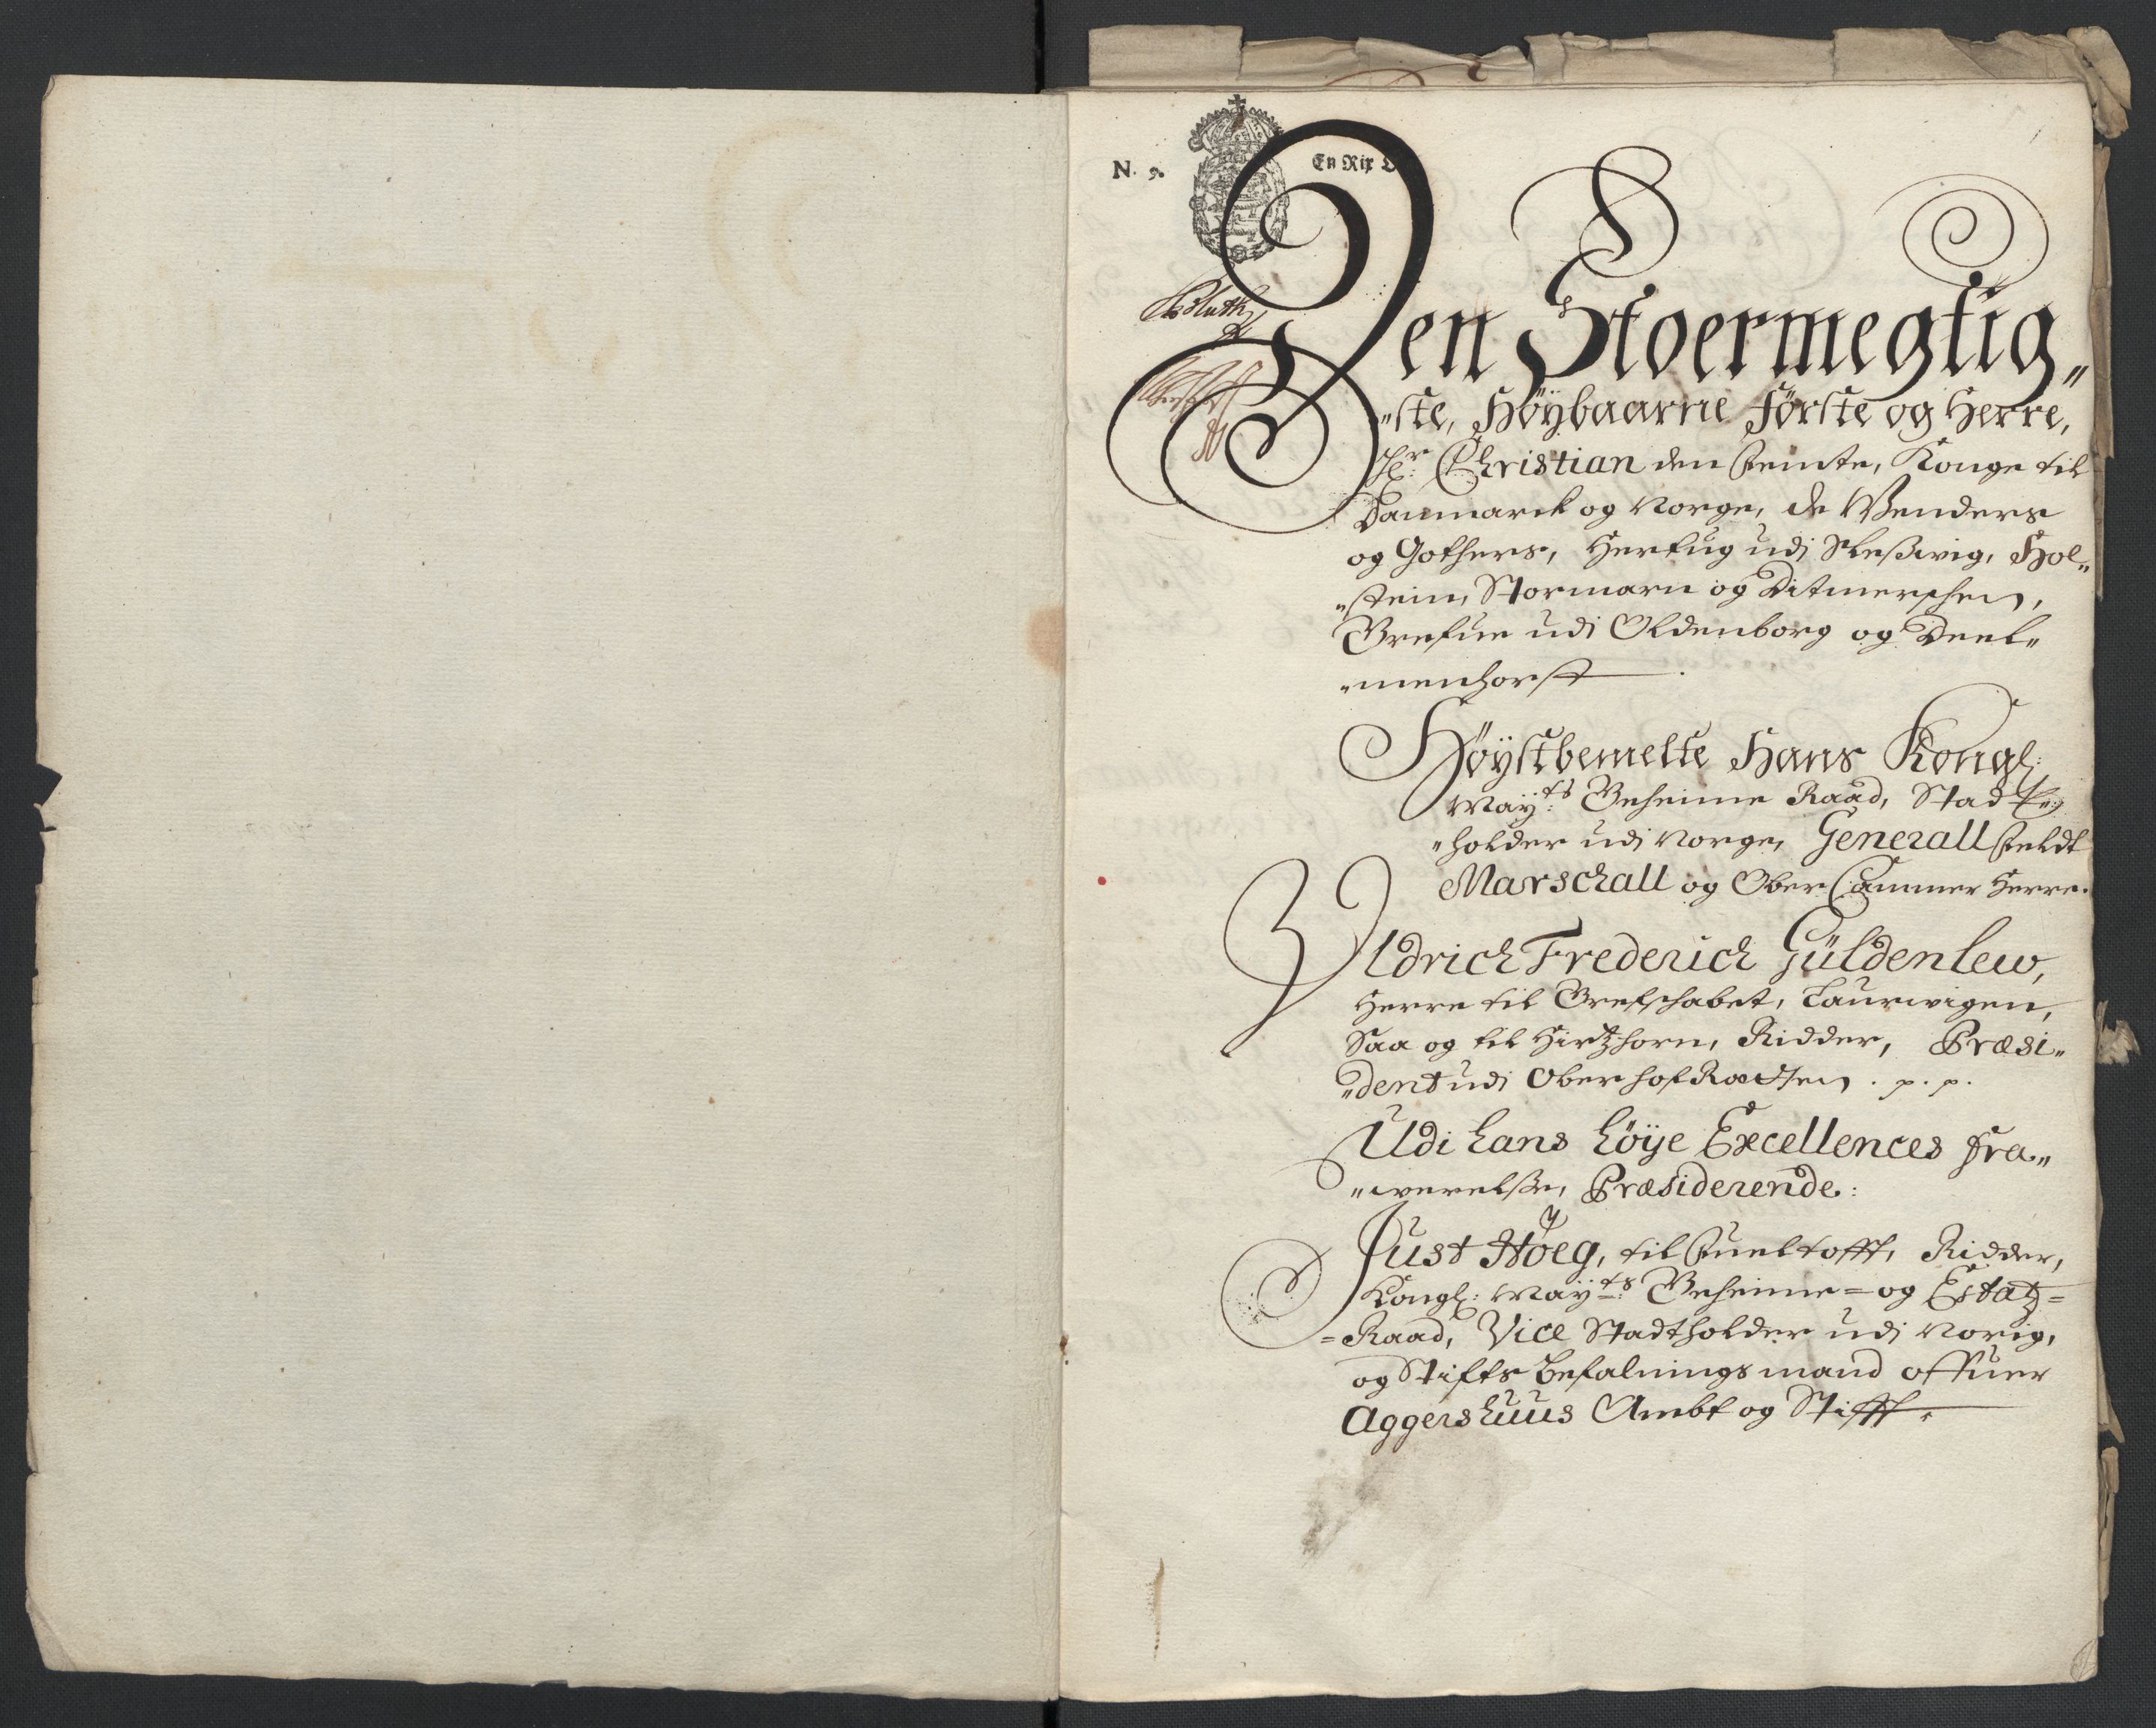 N. 9. En Rix D
Den Stoermegtig„
„ste, Höybaarne Förste og Herre,
Hr: Christian den Femte, Konge til
Danmarck og Norge, de Wenders
og Gothers, Hertug udj Sleßwig, Hol„
„stein, Stormarn og Ditmerschen,
Grefue udi Oldenborg og Deel„
„menhorst.
Höystbemelte Hans Kongl:
Mayts: Geheime Raad, Stadt„
„holder udj Norge, Generall Feldt
Marschall og Ober Cammer Herre.
Uldrich Frederich Güldenlew,
Herre til Grefschabet, Laurwigen,
Saa og til Hirtzhorn, Ridder, Præsi„
„dent udj Ober hof Rætten . p. p.
Udi hans höye Excellences fra„
„werelße, Præsiderende:
Just Höeg, til Fueltofft, Ridder,
Kongl: Mayts: Geheime= og Estatz=
=Raad, Vice Stadtholder udj Norig,
og Stifts befalningsmand offuer
Aggershuus Ambt og Stifft.